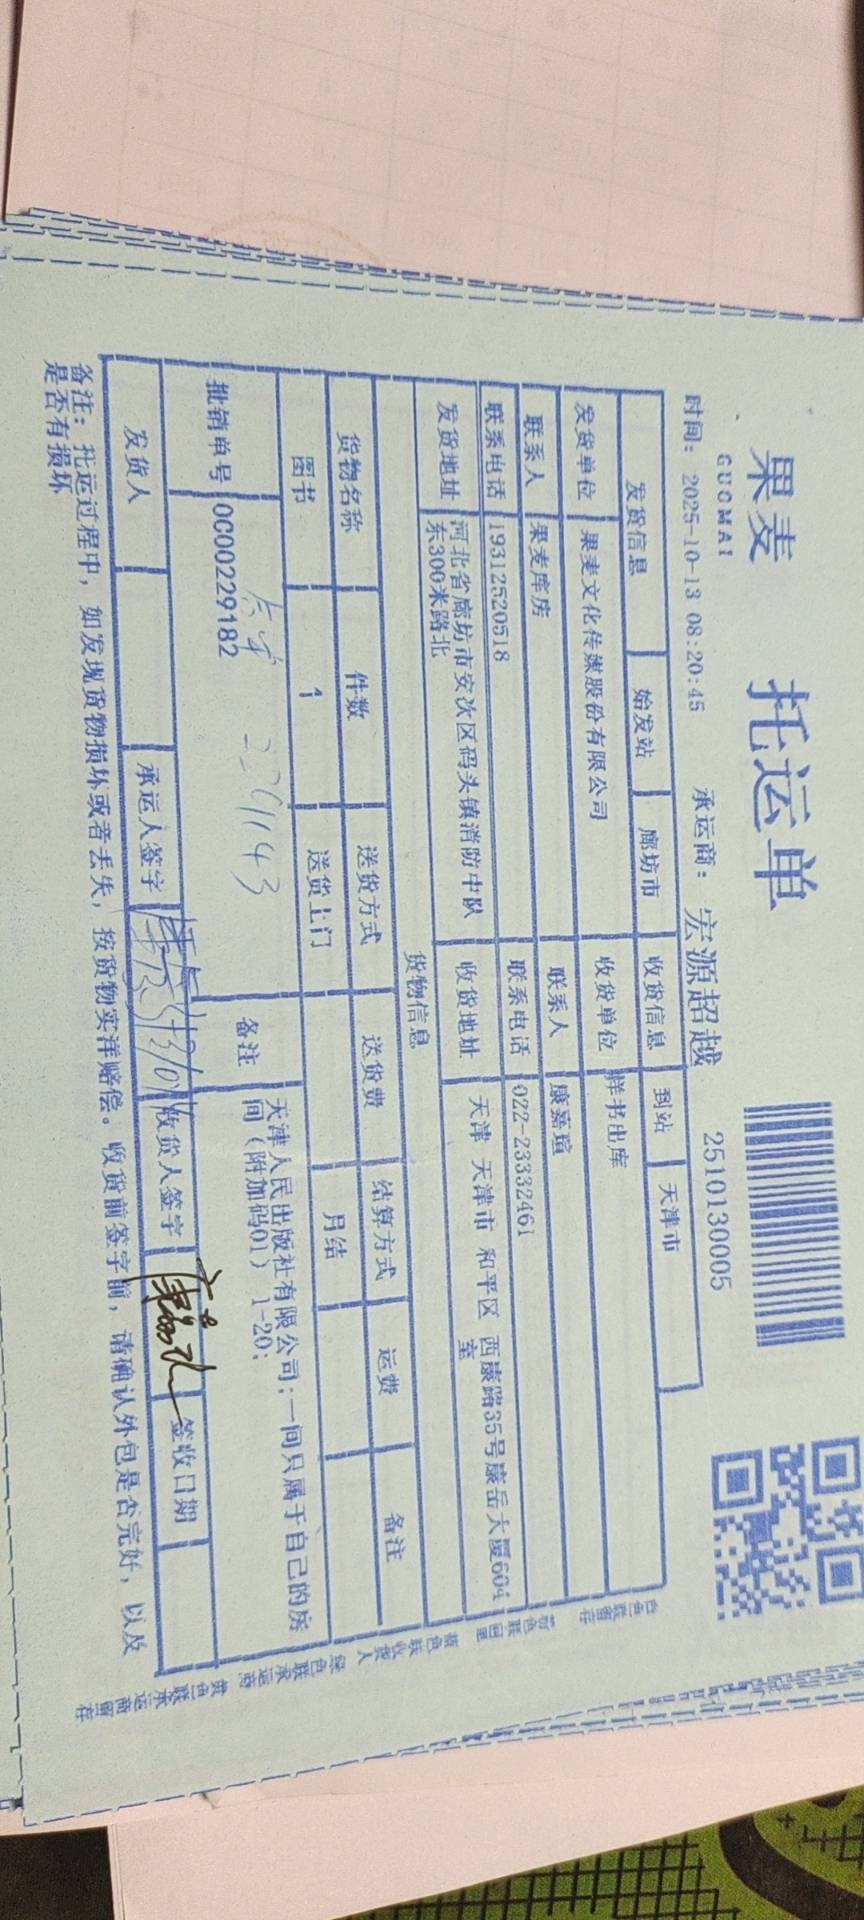 果麦
GUOMAI
托运单
2510130005
时间: 2025-10-13 08:20:45 承运商: 宏源超越
发货信息 始发站 廊坊市 收货信息 到站 天津市
发货单位 果麦文化传媒股份有限公司 收货单位 样书出库
联系人 果麦库房 联系人 康嘉瑄
联系电话 19312520518 联系电话 022-23332461
发货地址 河北省廊坊市安次区码头镇消防中队
东300米路北
收货地址 天津 天津市 和平区 西康路35号康岳大厦604
室
货物信息
货物名称 件数 送货方式 送货费 结算方式 运费 备注
图书 1 送货上门 月结
批销单号 0C00229182
229143
备注 天津人民出版社有限公司:一间只属于自己的房
间(附加码01) 1-20;
发货人 承运人签字 收货人签字 签收日期
备注: 托运过程中, 如发现货物损坏或者丢失, 按货物实洋赔偿。收货前签字前, 请确认外包是否完好, 以及
是否有损坏